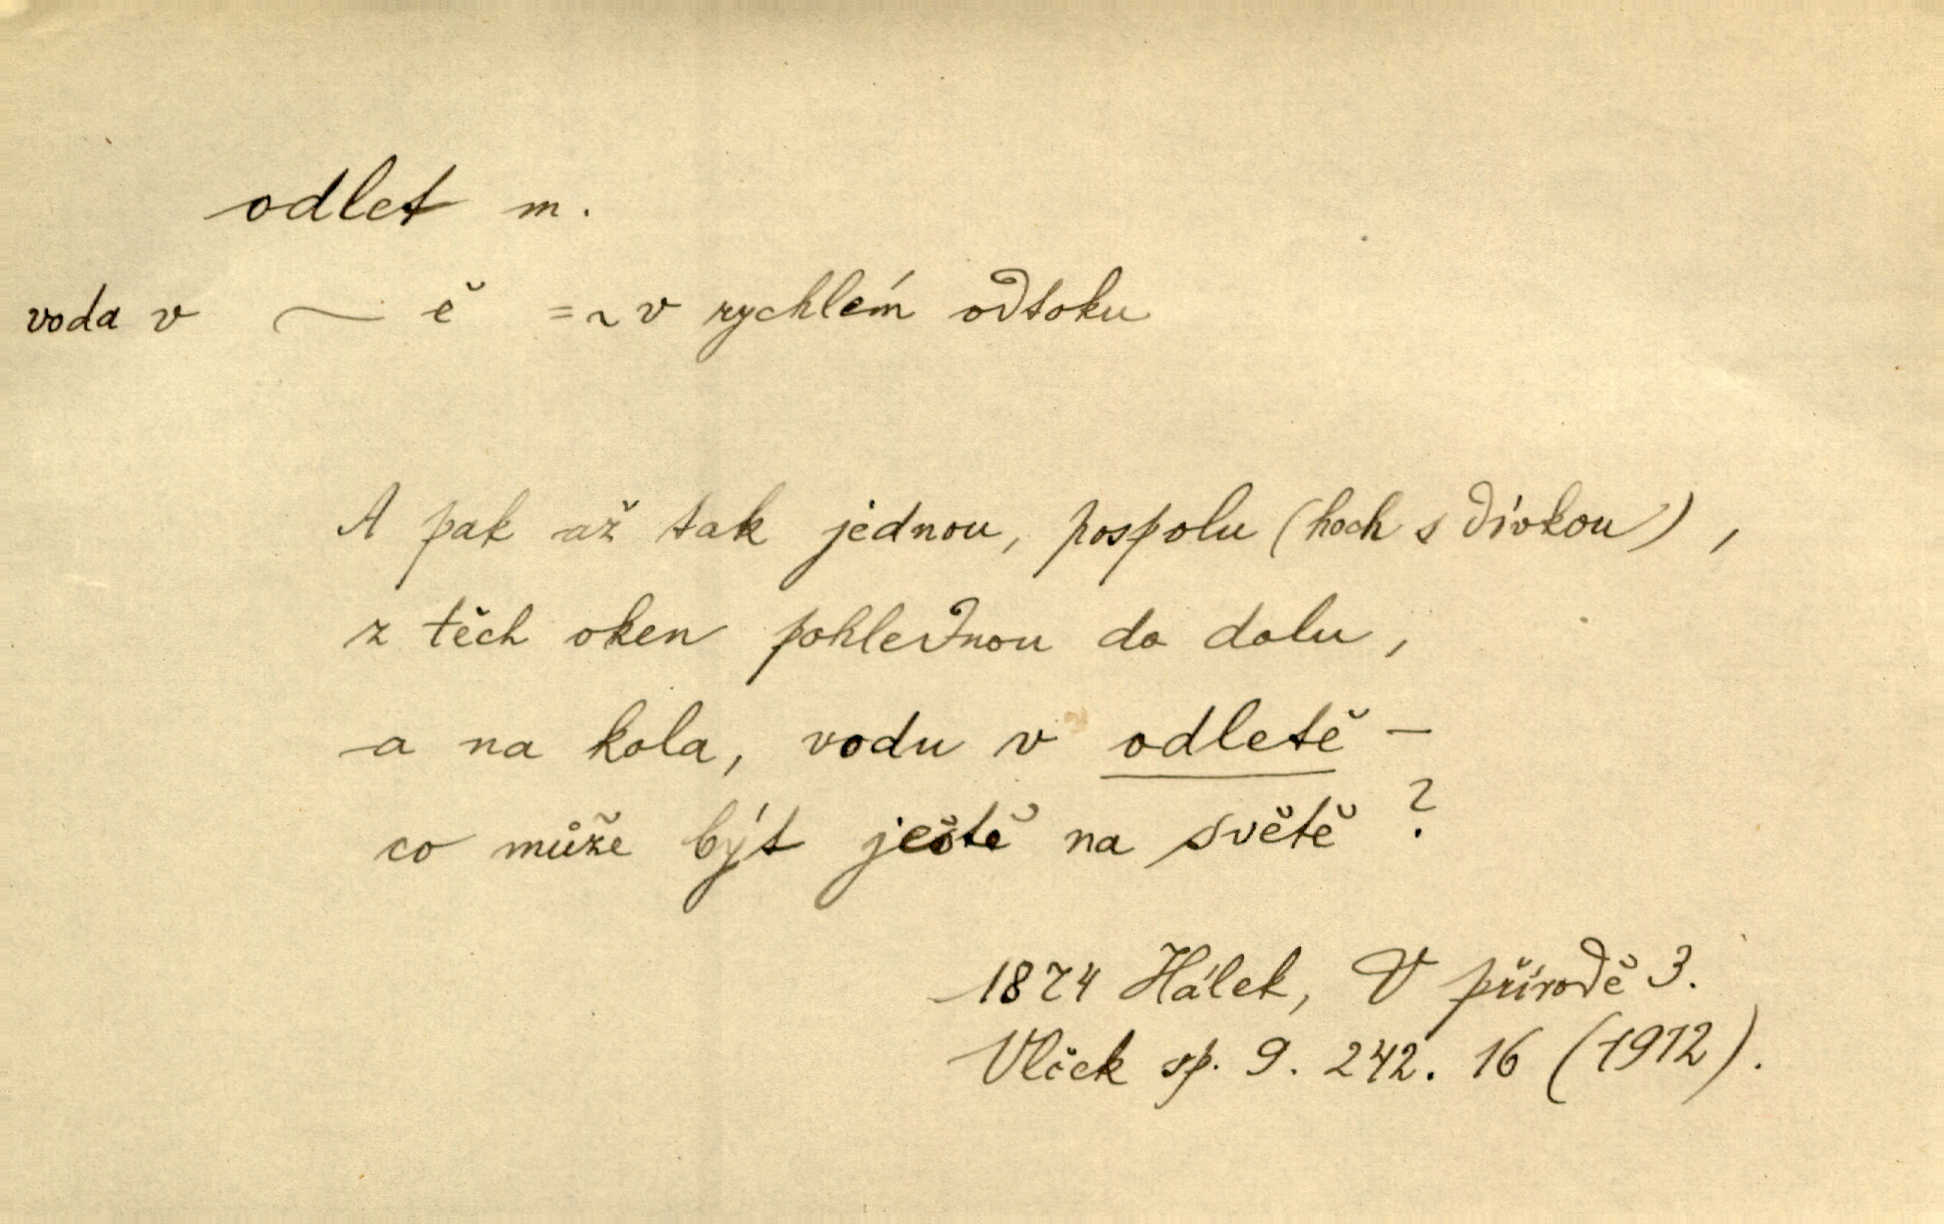 odlet m.
voda v ~ ě = ~ v rychlém odtoku
A pak až tak jednou, pospolu (hoch s dívkou),
z těch oken pohlednou do dolu,
a na kola, vodu v odletě –
co může být ještě na světě?
1874 Hálek, V přírodě 3.
Vlček sp. 9. 242. 16 (1912).